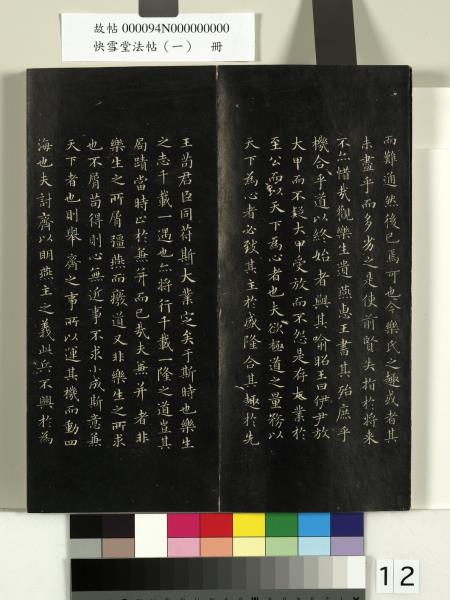 故帖 000094N000000000
快雪堂法帖（一） 冊
而難通然後已焉可也今樂氏之趣或者其
未盡乎而多劣之是使前賢失指於將來
不亦惜哉觀樂生遺燕惠王書其殆庶乎
機合乎道以終始者與其喻昭王曰伊尹放
大甲而不疑大甲受放而不怨是存大業於
至公而以天下為心者也夫欲極道之量務以
天下為心者必致其主於盛隆合其趣於先
王苟君臣同符斯大業定矣于斯時也樂生
之志千載一遇也亦將行千載一隆之道豈其
局蹟當時止於兼并而已哉夫兼并者非
樂生之所屑彊燕而廢道又非樂生之所求
也不屑苟得則心無近事不求小成斯意兼
天下者也則舉齊之事所以運其機而動四
海也夫討齊以明燕主之義此兵不興於為
12